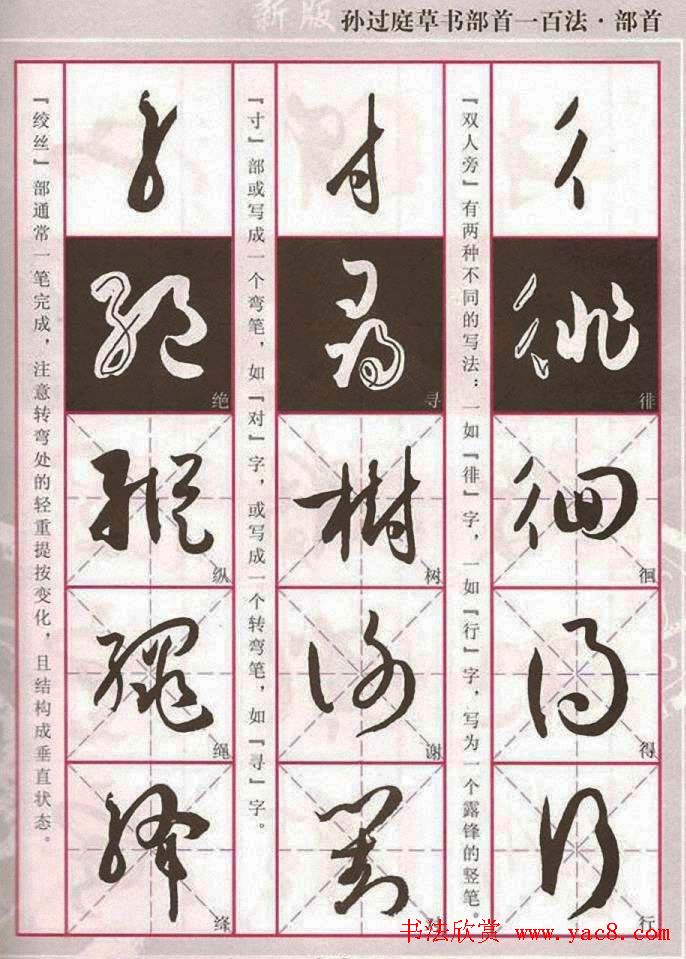 新版 孙过庭草书部首一百法·部首
『双人旁』有两种不同的写法；一如『徘』字，一如『行』字，写为一个露锋的竖笔。
彳
徘
徊
得
行
『寸』部或写成一个弯笔，如『对』字，或写成一个转弯笔，如『寻』字。
寸
寻
树
谢
『绞丝』部通常一笔完成，注意转弯处的轻重提按变化，且结构成垂直状态。
绝
纵
绳
绛
书法欣赏 www.yac8.com